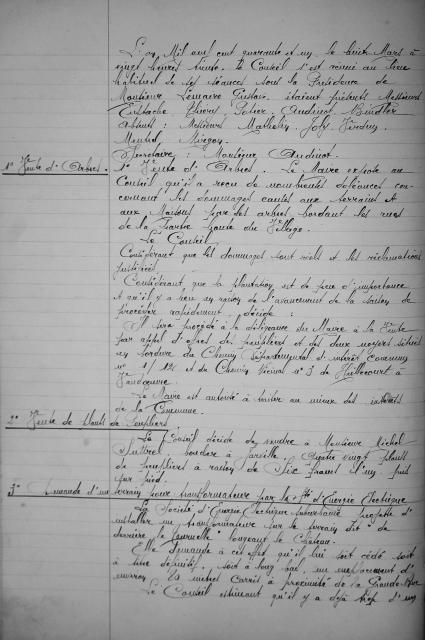 L'an Mil neuf cent quarante et un, le huit Mars à
vingt heures trente, le Conseil s'est réuni au lieu
habituel de ses séances sous la Présidence de
Monsieur Lemaire Gustave, étaient présents Messieurs
Eustache, Thiery, Potier, Audinot,
Absents : Messieurs Mathelin, Joly,
Secrétaire : Monsieur Audinot.
1° Vente d'Arbres.
1° Vente d'Arbres. Le Maire expose au
Conseil qu'il a reçu de nombreuses doléances con-
cernant les dommages causés aux terrains et
aux Maisons par les arbres bordant les rues
de la Partie haute du Village.
Le Conseil
Considérant que les dommages sont réels et les réclamations
justifiées
Considérant que la plantation est de peu d'importance
et qu'il y a lieu en raison de l'avancement de la saison de
procéder rapidement, décide :
Il sera procédé à la diligence du Maire à la Vente
par appel d'offres de peupliers et des deux noyers situés
en bordure du Chemin départemental d'intérêt commun
n° et du Chemin Vicinal n° 3 de à
Vandoeuvre.
Le Maire est autorisé à traiter au mieux des intérêts
de la Commune.
2° Vente de Plants de Peupliers
Le Conseil décide de vendre à Monsieur Michel
à Jarville, quatre vingt plants
de peupliers à raison de Six francs l'un, pris
sur pied.
3° Demande d'un terrain pour transformateur par la Sté d'Energie Electrique
La Société d'Energie Electrique projette d'
installer un transformateur sur le terrain dit de
derrière la Tournelle longeant le Château.
Elle demande à cet effet qu'il lui soit cédé soit
à titre définitif, soit à long bail, un emplacement d'
environ mètres carrés à proximité de la Grande Rue
Le Conseil estimant qu'il y a déjà trop d'un